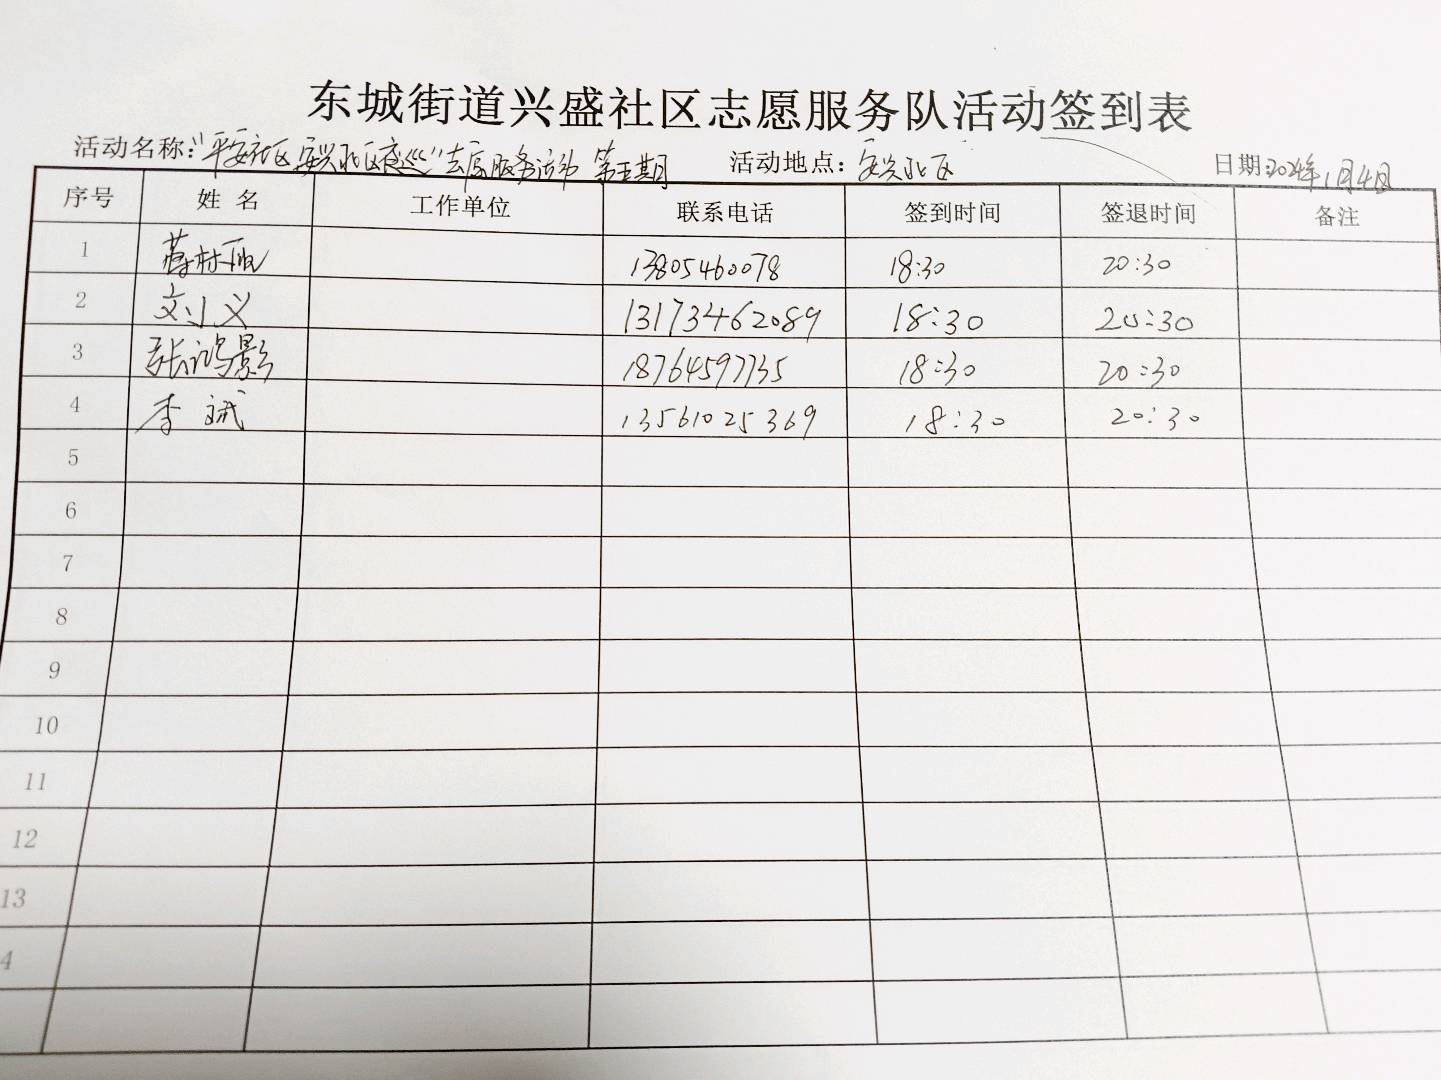 东城街道兴盛社区志愿服务队活动签到表
活动名称:"平安社区 安兴北区夜巡"志愿服务活动 第五期 活动地点: 安兴北区 日期:2024年1月4日
序号 姓名 工作单位 联系电话 签到时间 签退时间 备注
1 13805460078 18:30 20:30
2 刘小义 13173462089 18:30 20:30
3 张鸿影 18764597735 18:30 20:30
4 李斌 13561025369 18:30 20:30
5
6
7
8
9
10
11
12
13
4